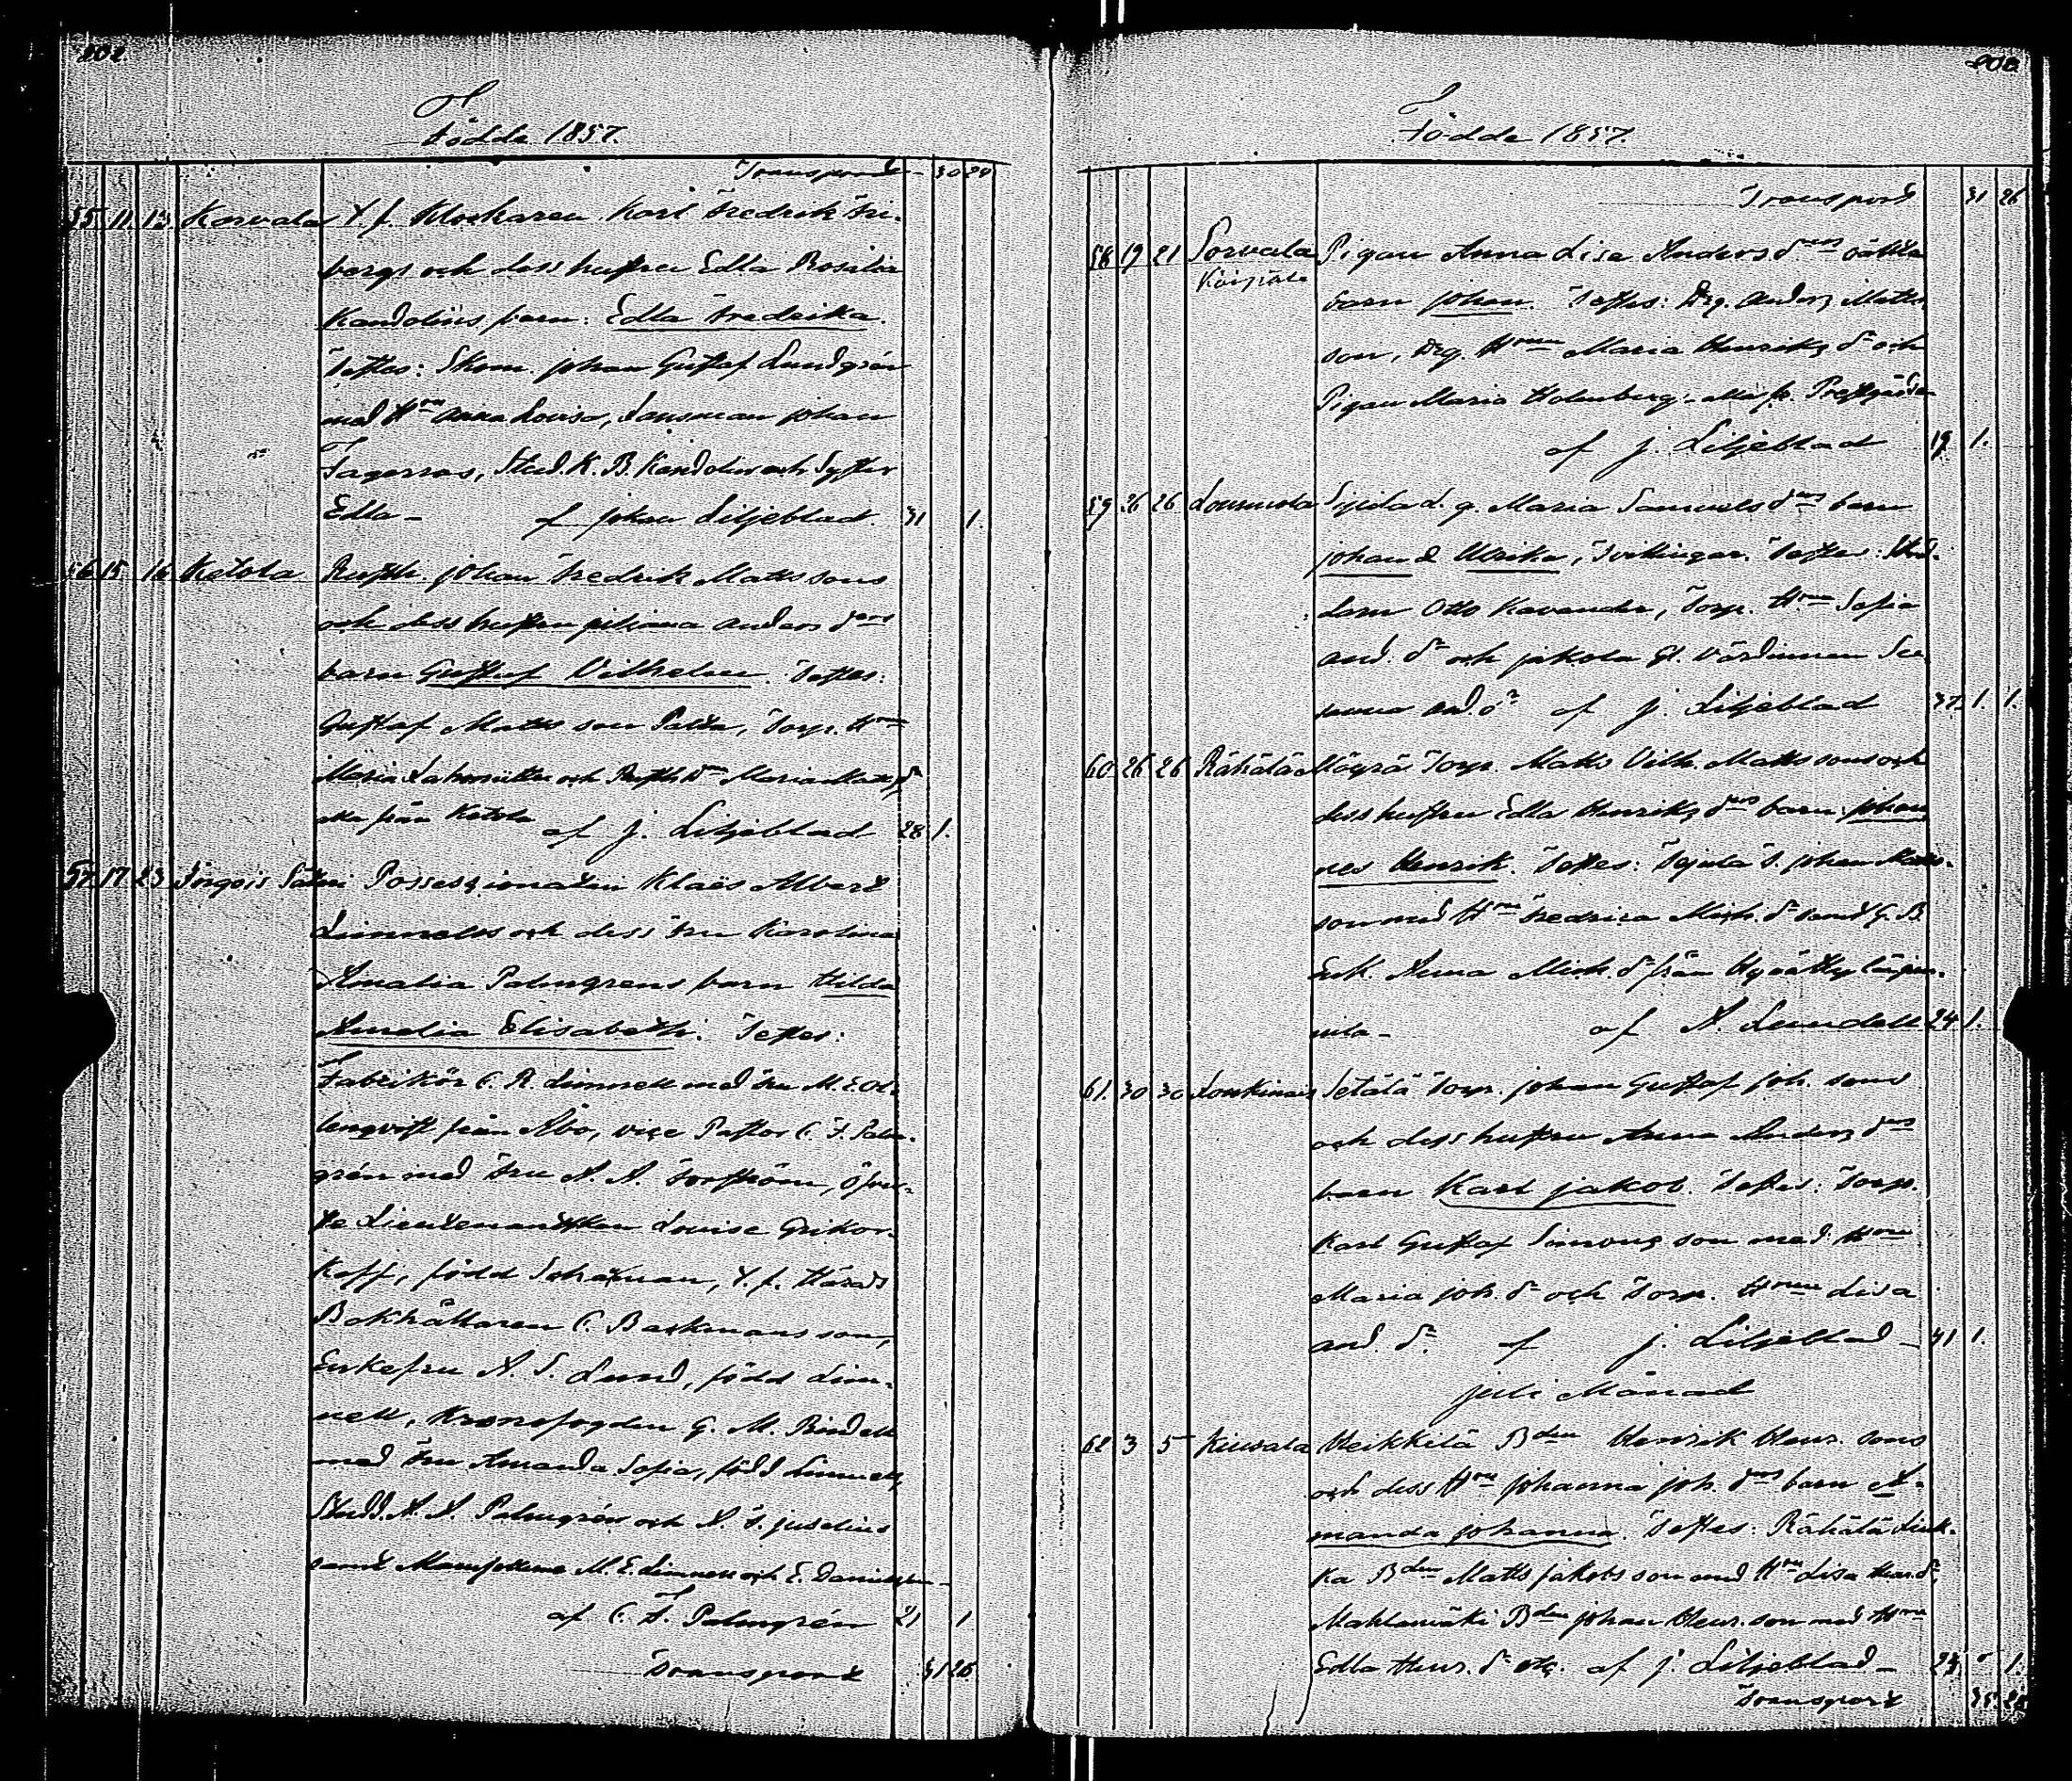 202.
Födde 1857.
Transport - 30 24
55 11. 12. Korvala T. f. Klockaren Karl Fredrik Fri-
bergs och dess hustru Edla Rosalia
Kandolins barn: Edla Fredrika.
Testes: Skom. Johan Gustaf Lundgrén
med H:run Anna Lovisa, Lansman Johan
Fagerroos, Stud. K. B. Kandolin och Syster
Edla - af Johan Liljeblad. 31 1.
56 15 16 Ketola Rusth. Johan Fredrik Matts sons
och dess hustru Juliana Anders d:rs
barn Gustaf Vilhelm. Testes:
Gustaf Matts son Palta, Torp. H:run
Maria och Rusth. D:r Maria Matts d:r
alla från Ketola af J. Liljeblad 28 1.
57. 17. 23 Jörgois Säteri Possessionaten Klaës Albert
Limnells och dess Fru Karolina
Amalia Palmgrens barn Hilda
Amelia Elisabeth. Testes:
Fabrikör C. R. Limnell med Fru M. E.
från Åbo, vice Pastor C. F. Palm-
grén med Fru A. A. Forsström, Öfvers-
te Lieutenantskan Louise Grikor-
koff, född Schatman, T. f. Härads
Bokhållaren C. Backmansson,
Enkefru A. S. Lund, född Lim-
nell, Kronofogden G. M. Rindell
med Fru Amanda Sofia, född Limnell,
Studd. A. A. Palmgrén och A. F. Juselius
samt Mamsellerna M. E. Limnell och E. Danielsson -
af C. F. Palmgrén 21 1
Transport 31 26
203
Födde 1857.
Transport 31 26
58 19 21 Sorvala Pigan Anna Lisa Anders d:rs oäkta
Köipälä
barn Johan. Testes: Drg. Anders Matts
son, Drg. H:run Maria Henriks d:r och
Pigan Maria Holmberg, alla fr. Prestgården
af J. Liljeblad 19 1.
59 26 26 Maria Samuels d:rs barn
Johan & Ulrika, Tvillingar. Testes: Stu-
dern Otto Kavander, Torp. H:run Sofia
And. d:r och Jakola Gl. Värdinnan Su-
sanna And. d:r af J. Liljeblad 37. 1. 1.
60. 26 26 Rähälä Mögrä Torp. Matts Vilh. Matts sons och
dess hustru Edla Henriks d:rs barn Johan-
nes Henrik. Testes: T. Johan Matts-
son med H:run Fredrica Mich. d:r samt G. B.
Enk. Anna Mich. d:r från
mila - af A. Lundell 24 1.
61. 30 30 Loukinais Setälä Torp. Johan Gustaf Joh. sons
och dess hustru Anna Anders d:rs
barn Karl Jakob. Testes: Torp.
Karl Gustaf Simons son med H:run
Maria Joh. d:r och Torp. H:run Lisa
And. d:r af J. Liljeblad - 41 1.
Juli Månad
62 3 5 Kiuvala Heikkilä B:den Henrik Henr. sons
och dess H:ru Johanna Joh. d:rs barn A-
manda Johanna. Testes: Rähälä Liuk-
ka B:den Matts Jakobs son med H:run Lisa Henr. d:r,
Mahlamäki B:den Johan Henr. son med H:run
Edla Henr. d:r etc. af J. Liljeblad - 24 " 1.
Transport 35 28